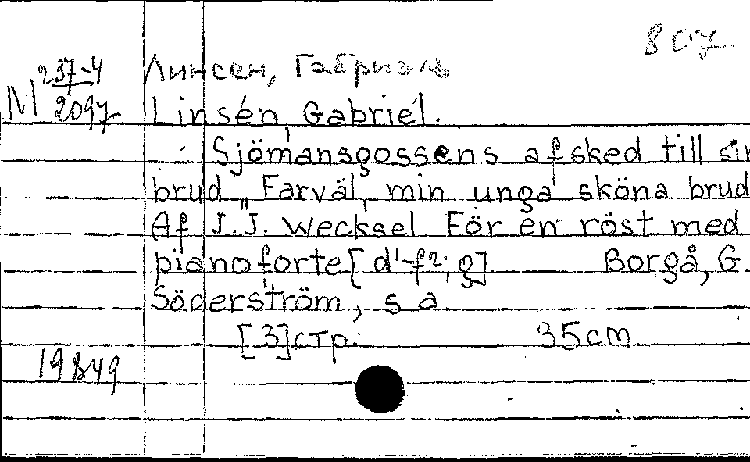 807
237-4
Линсен, Габриэль
M 2097
Linsén, Gabriel.
Sjömansgossens afsked till sin
brud „Farväl, min unga sköna brud
Af J.J. Wecksel För en röst med
pianoforte [d¹-f²; g] Borgå, G.
Söderström, s a
[3] стр. 35cm
19849